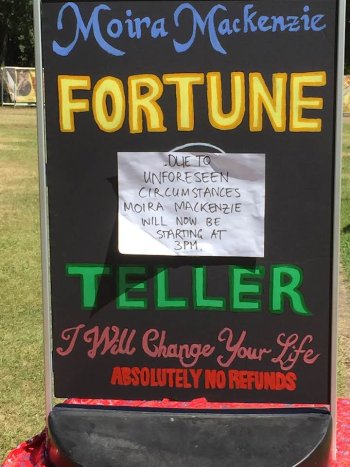 Moira Mackenzie
FORTUNE
DUE TO
UNFORESEEN
CIRCUMSTANCES
MOIRA MACKENZIE
WILL NOW BE
STARTING AT
3PM.
TELLER
I Will Change Your Life
ABSOLUTELY NO REFUNDS